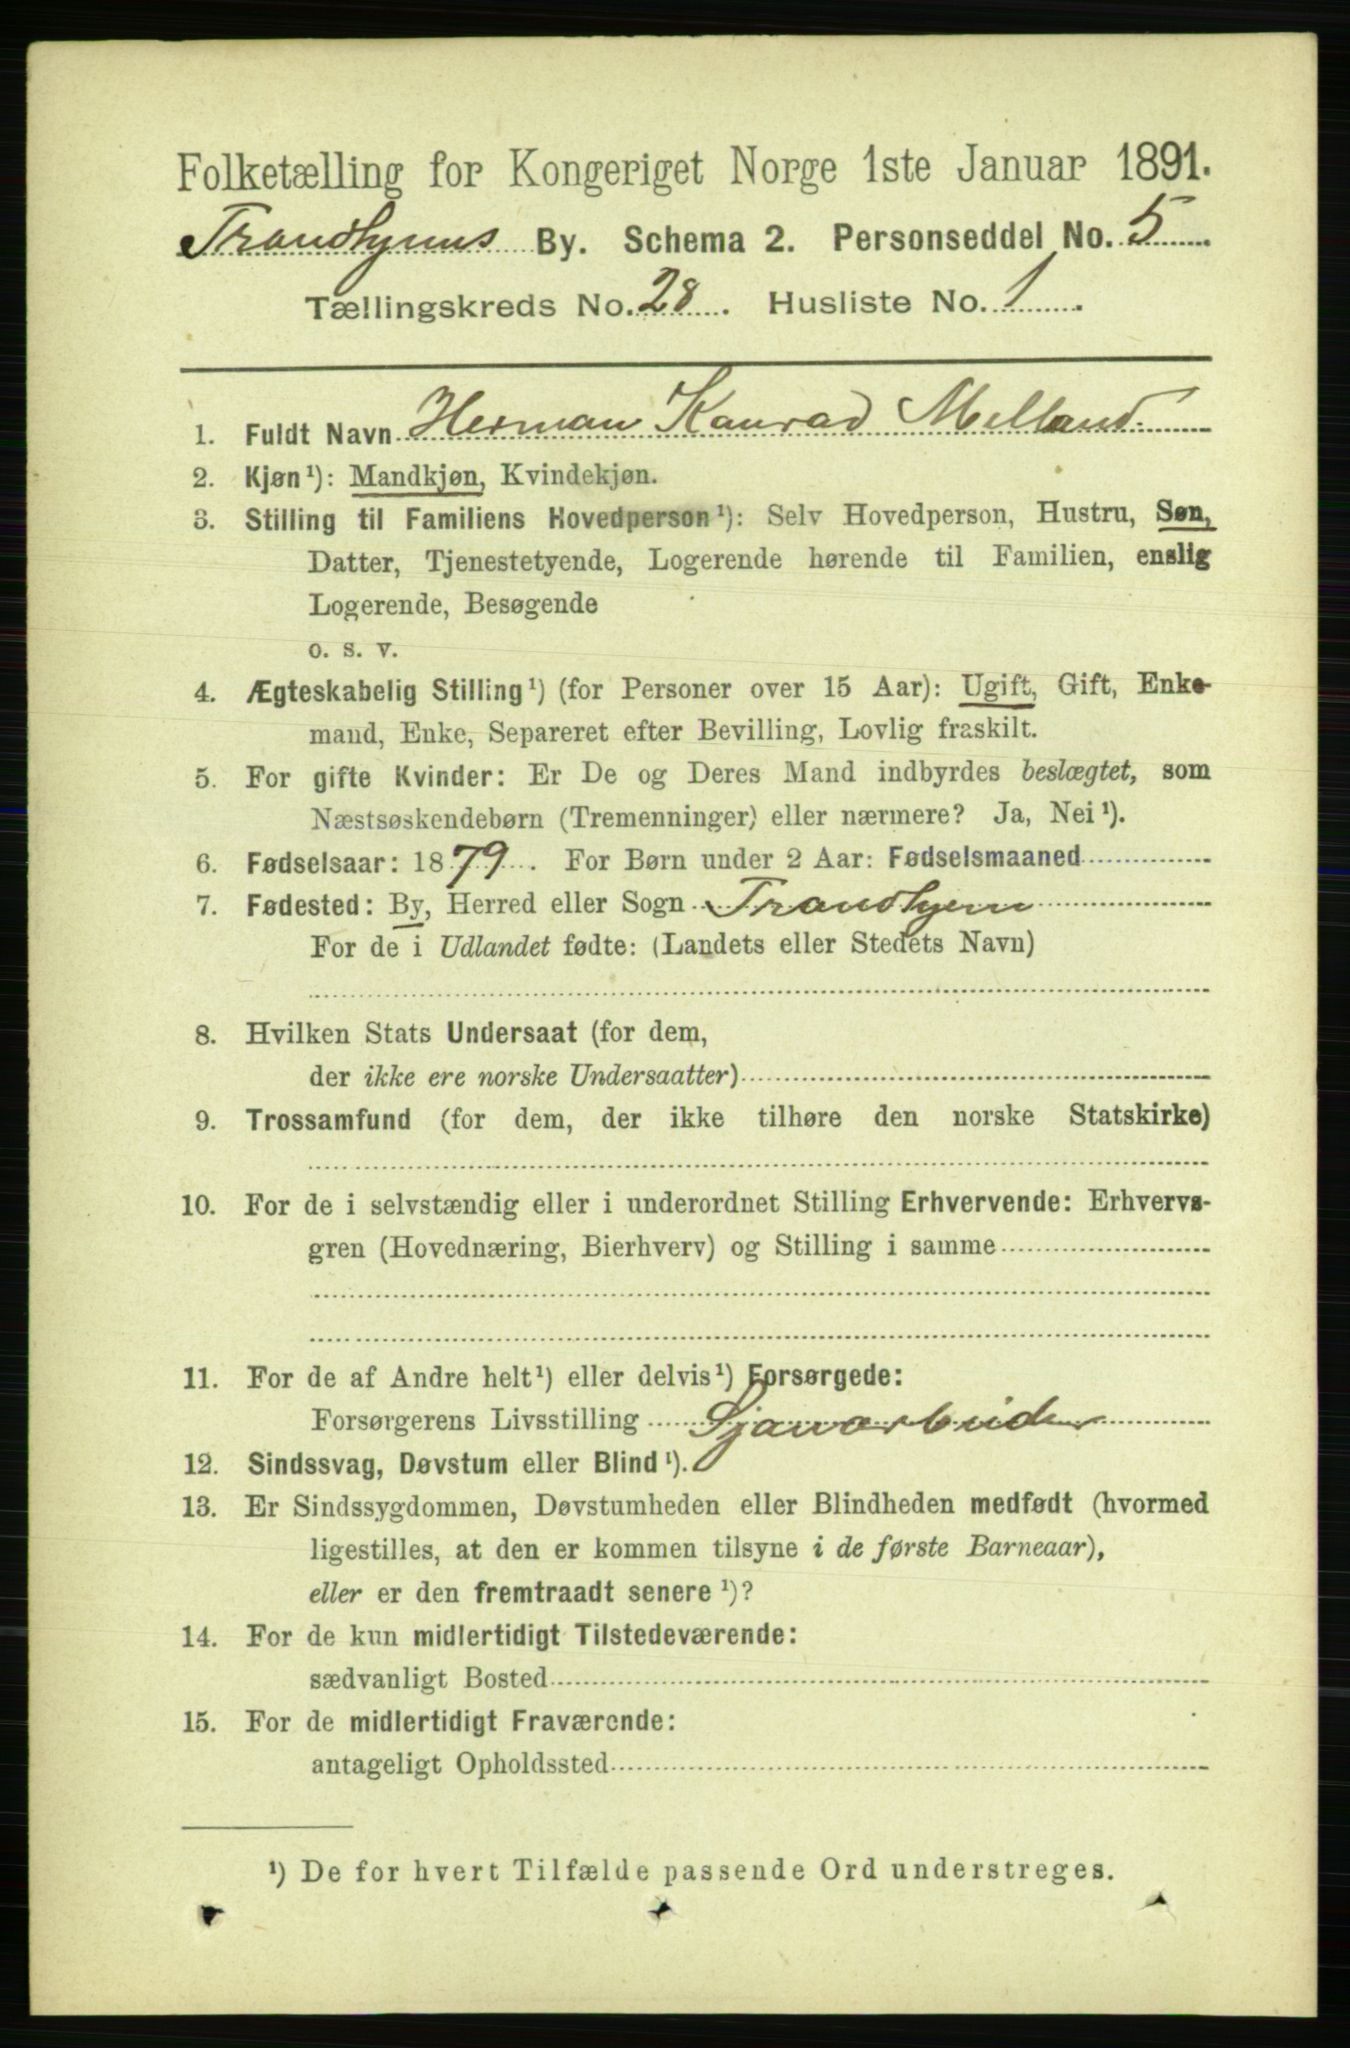 Folketælling for Kongeriget Norge 1ste Januar 1891.
Trondhjems By. Schema 2. Personseddel No. 5
Tællingskreds No. 28. Husliste No. 1.
1. Fuldt Navn Herman Konrad Melland.
2. Kjøn¹): Mandkjøn, Kvindekjøn.
3. Stilling til Familiens Hovedperson¹): Selv Hovedperson, Hustru, Søn,
Datter, Tjenestetyende, Logerende hørende til Familien, enslig
Logerende, Besøgende
o. s. v.
4. Ægteskabelig Stilling¹) (for Personer over 15 Aar): Ugift, Gift, Enke-
mand, Enke, Separeret efter Bevilling, Lovlig fraskilt.
5. For gifte Kvinder: Er De og Deres Mand indbyrdes beslægtet, som
Næstsøskendebørn (Tremenninger) eller nærmere? Ja, Nei¹).
6. Fødselsaar: 1879. For Børn under 2 Aar: Fødselsmaaned
7. Fødested: By, Herred eller Sogn Trondhjem
For de i Udlandet fødte: (Landets eller Stedets Navn)
8. Hvilken Stats Undersaat (for dem,
der ikke ere norske Undersaatter)
9. Trossamfund (for dem, der ikke tilhøre den norske Statskirke)
10. For de i selvstændig eller i underordnet Stilling Erhvervende: Erhvervs-
gren (Hovednæring, Bierhverv) og Stilling i samme
11. For de af Andre helt¹) eller delvis¹) Forsørgede:
Forsørgerens Livsstilling Sjauarbeider
12. Sindssvag, Døvstum eller Blind¹).
13. Er Sindssygdommen, Døvstumheden eller Blindheden medfødt (hvormed
ligestilles, at den er kommen tilsyne i de første Barneaar),
eller er den fremtraadt senere¹)?
14. For de kun midlertidigt Tilstedeværende:
sædvanligt Bosted
15. For de midlertidigt Fraværende:
antageligt Opholdssted
¹) De for hvert Tilfælde passende Ord understreges.